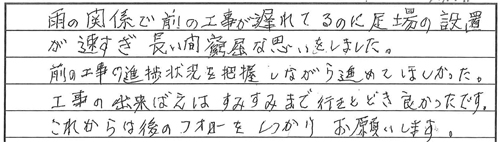 雨の関係で前の工事が遅れてるのに足場の設置
が速すぎ長い間窮屈な思いをしました。
前の工事の進捗状況を把握しながら進めてほしかった。
工事の出来ばえはすみずみまで行きとどき良かったです。
これからは後のフォローをしっかりお願いします。